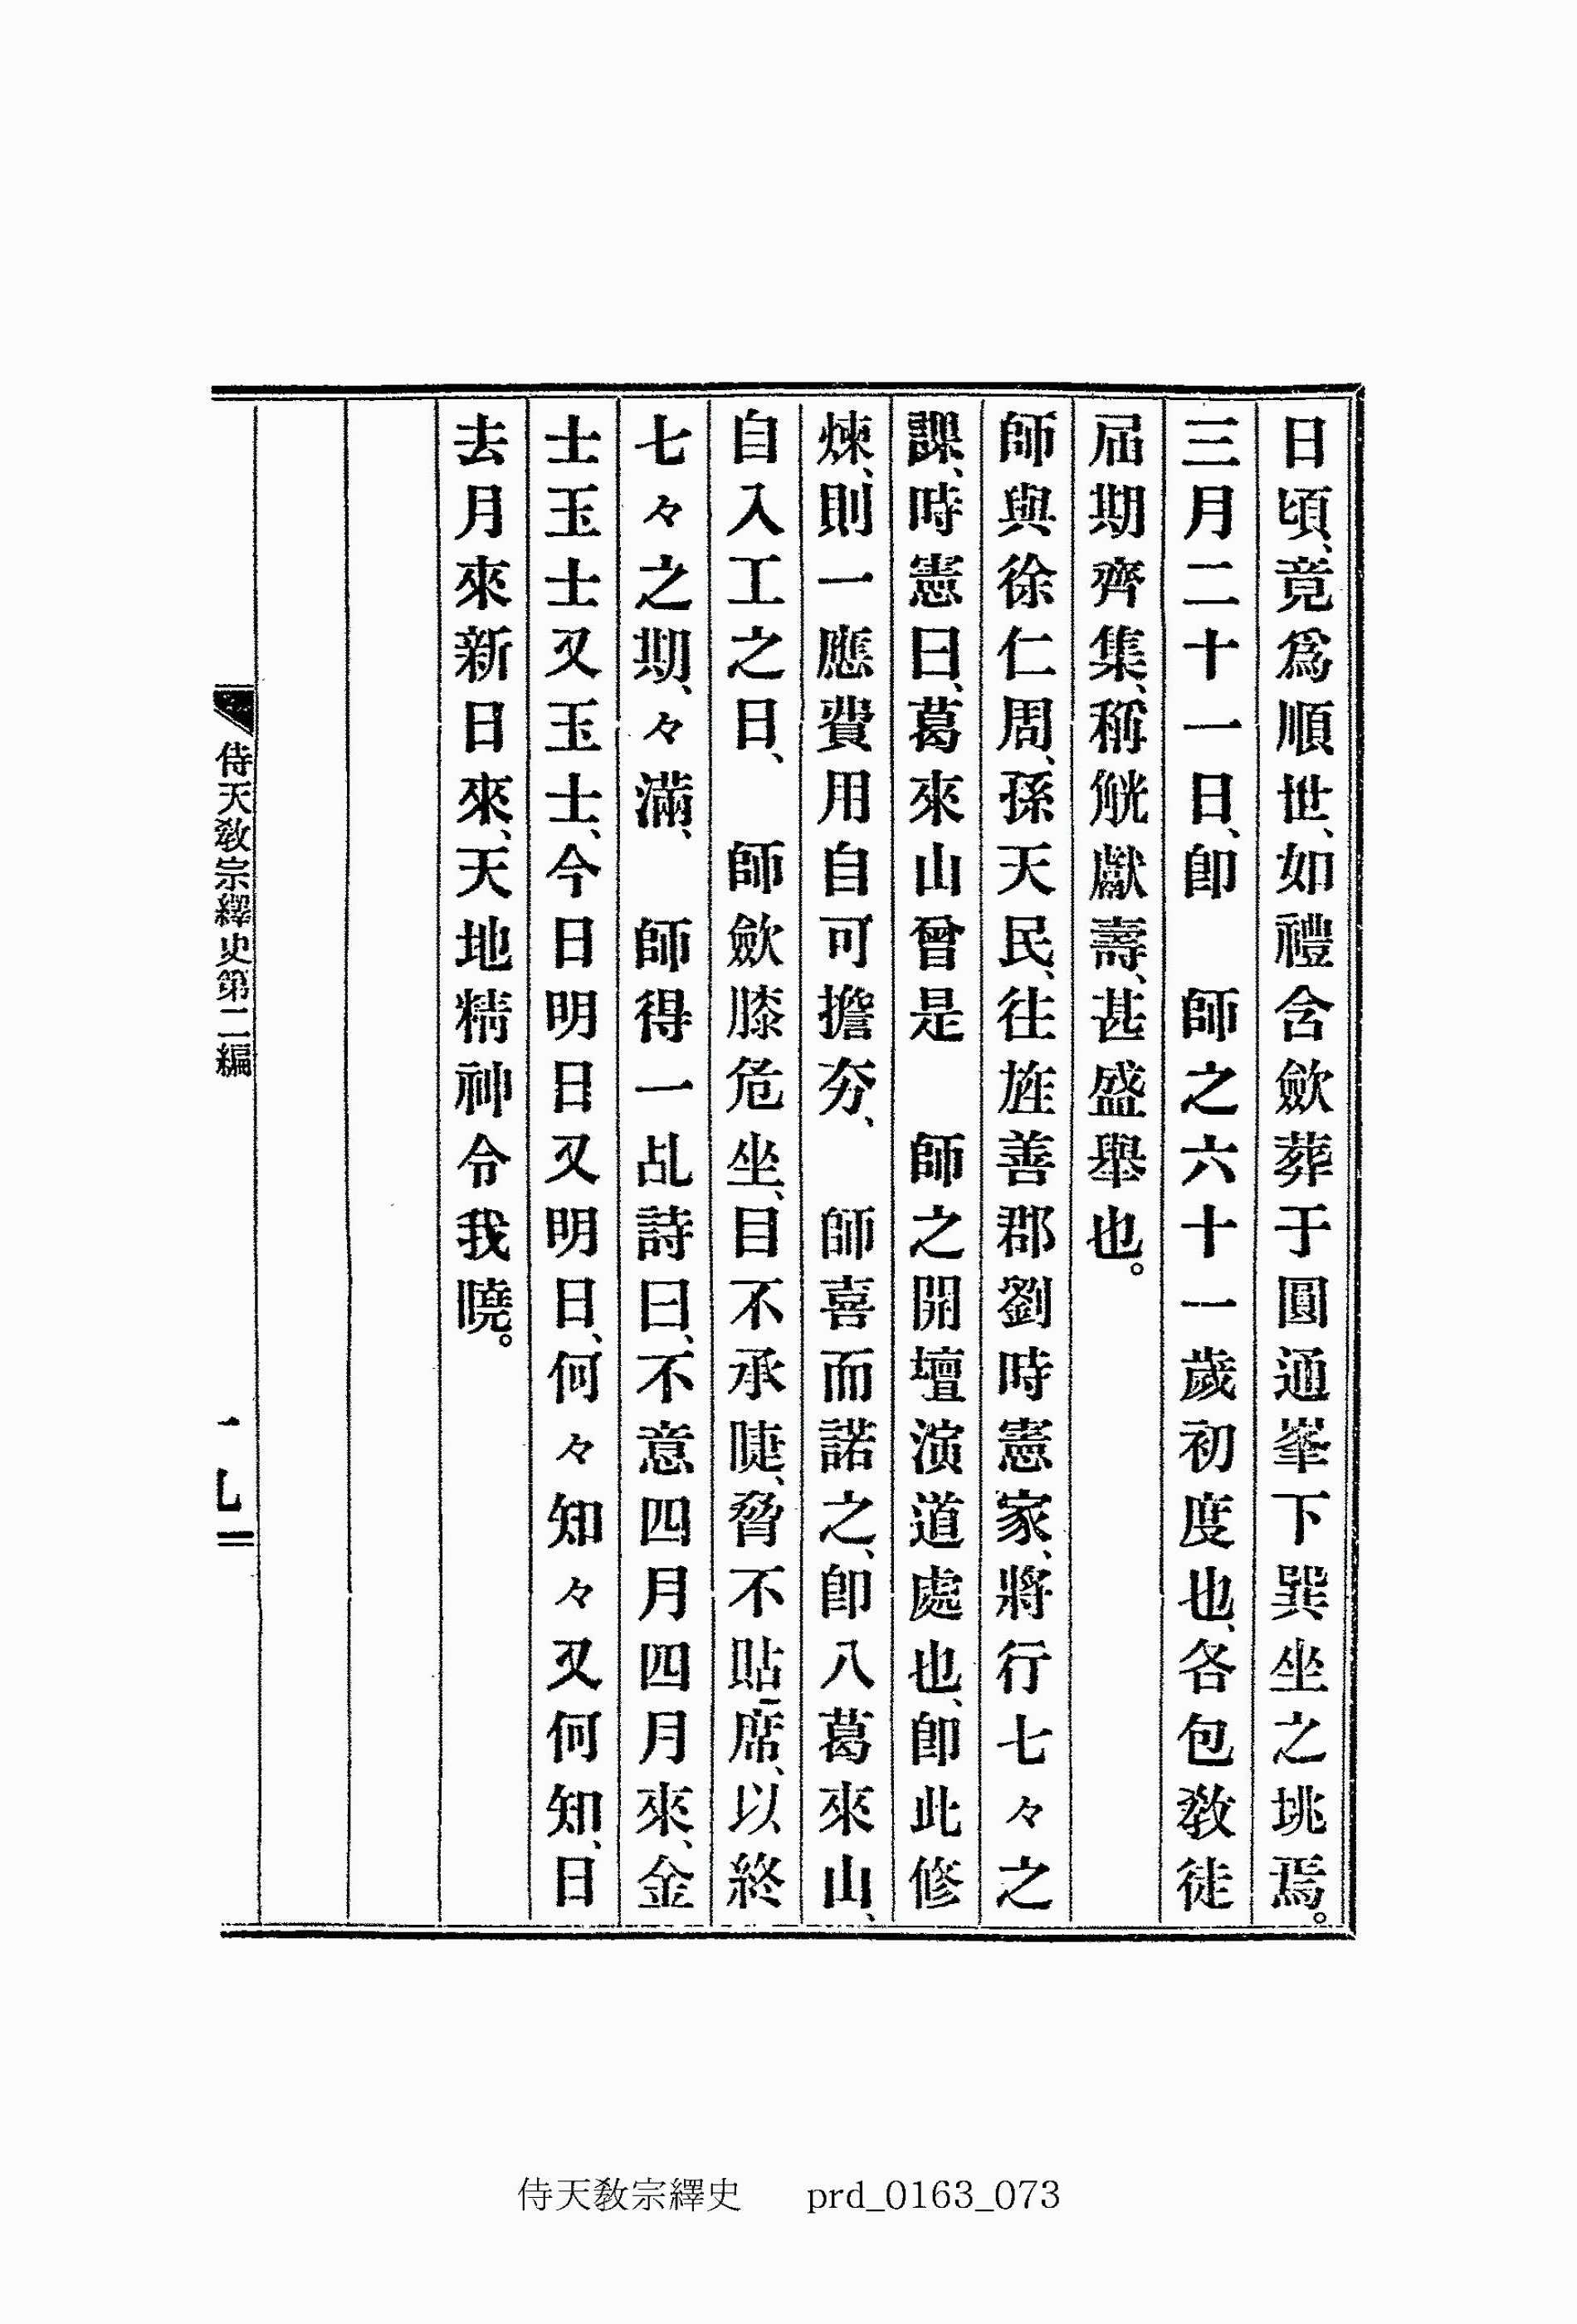 日頃、竟爲順世、如禮含歛葬于圓通峯下巽坐之垗焉。
三月二十一日、卽　師之六十一歲初度也、各包敎徒
屆期齊集、稱觥獻壽、甚盛擧也。
師與徐仁周、孫天民、往旌善郡劉時憲家、將行七々之
課、時憲曰、葛來山曾是　師之開壇演道處也、卽此修
煉、則一應費用自可擔夯、　師喜而諾之、卽入葛來山、
自入工之日、　師歛膝危坐、目不承睫、脅不貼席、以終
七々之期、々滿、　師得一乩詩曰、不意四月四月來、金
士玉士又玉士、今日明日又明日、何々知々又何知、日
去月來新日來、天地精神令我曉。
侍天敎宗繹史第二編